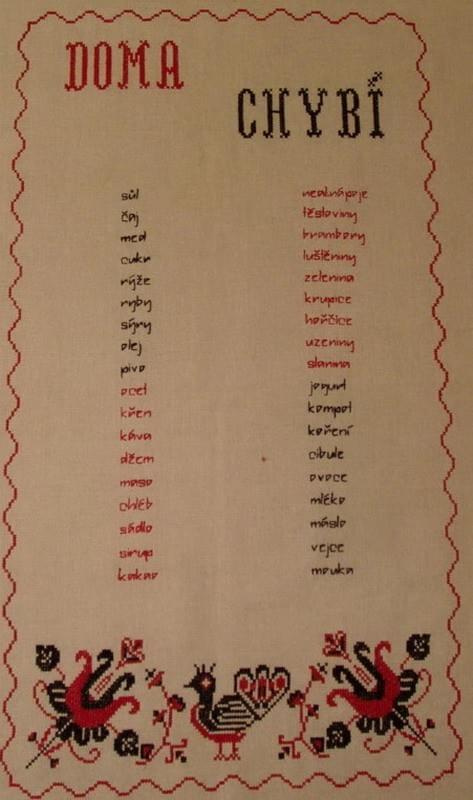 DOMA
CHYBÍ
sůl
čaj
med
cukr
rýže
ryby
sýry
olej
pivo
ocet
křen
káva
džem
maso
chléb
sádlo
sirup
kakao
nealnápoje
těstoviny
brambory
luštěniny
zelenina
krupice
hořčice
uzeniny
slanina
jogurt
kompot
koření
cibule
ovoce
mléko
máslo
vejce
mouka